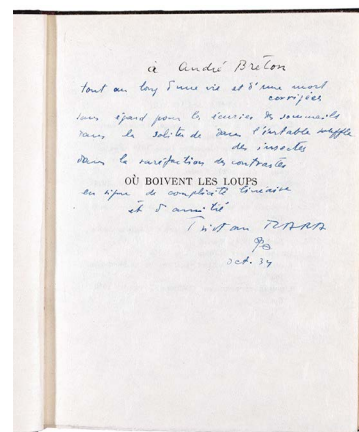 à André Breton
tout au long d'une vie et d'une mort
corrigées
sans égard pour les écuries des sommeils
dans la solitude dans l'instable souffle
des insectes
dans la raréfaction des contrastes
OÙ BOIVENT LES LOUPS
en signe de complicité linéaire
et d'amitié
Tristan TZARA
oct. 34